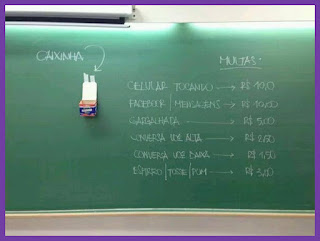 CAIXINHA
MULTAS:
CELULAR TOCANDO → R$ 10,0
FACEBOOK | MENSAGENS → R$ 10,00
GARGALHADA → R$ 5,00
CONVERSA VOZ ALTA → R$ 2,50
CONVERSA VOZ BAIXA → R$ 1,50
ESPIRRO | TOSSE | PUM → R$ 3,00